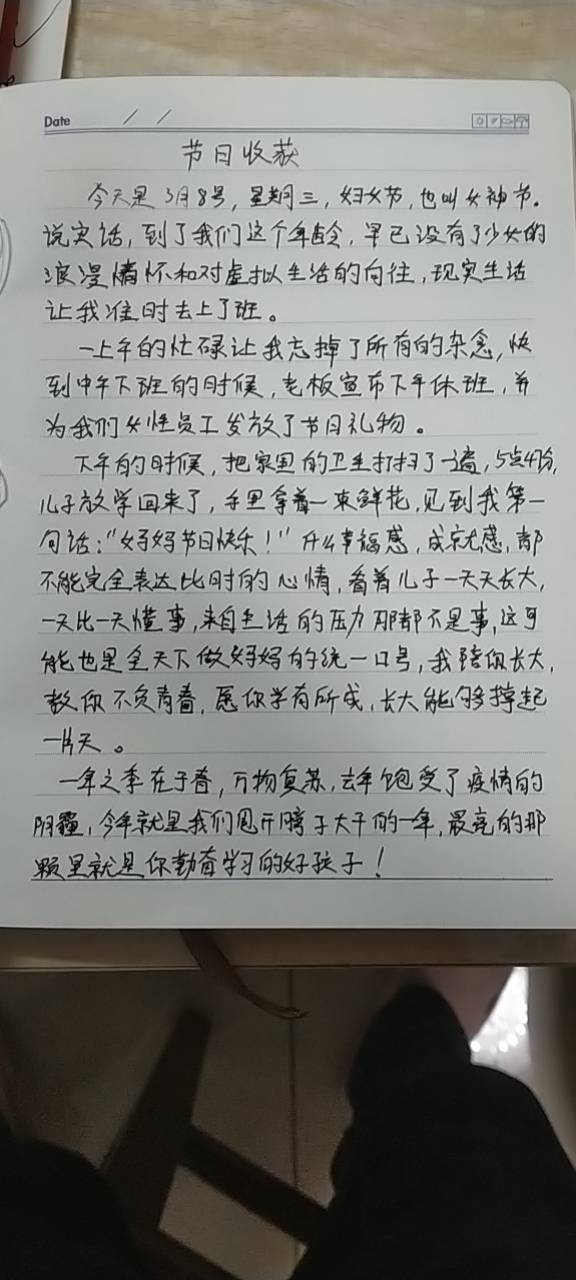 Date / /
节日收获
今天是3月8号,星期三,妇女节,也叫女神节。
说实话,到了我们这个年龄,早已没有了少女的
浪漫情怀和对虚拟生活的向往,现实生活
让我准时去上了班。
一上午的忙碌让我忘掉了所有的杂念,快
到中午下班的时候,老板宣布下午休班,并
为我们女性员工发放了节日礼物。
下午的时候,把家里的卫生打扫了一遍,5点4份,
儿子放学回来了,手里拿着一束鲜花,见到我第一
句话:"妈妈节日快乐!"什么幸福感,成就感,都
不能完全表达此时的心情,看着儿子一天天长大,
一天比一天懂事,来自生活的压力那都不是事,这可
能也是全天下做妈妈的统一口号,我陪你长大,
教你不负青春,愿你学有所成,长大能够撑起
一片天。
一年之季在于春,万物复苏,去年饱受了疫情的
阴霾,今年就是我们甩开膀子大干的一年,最亮的那
颗星就是你勤奋学习的好孩子!